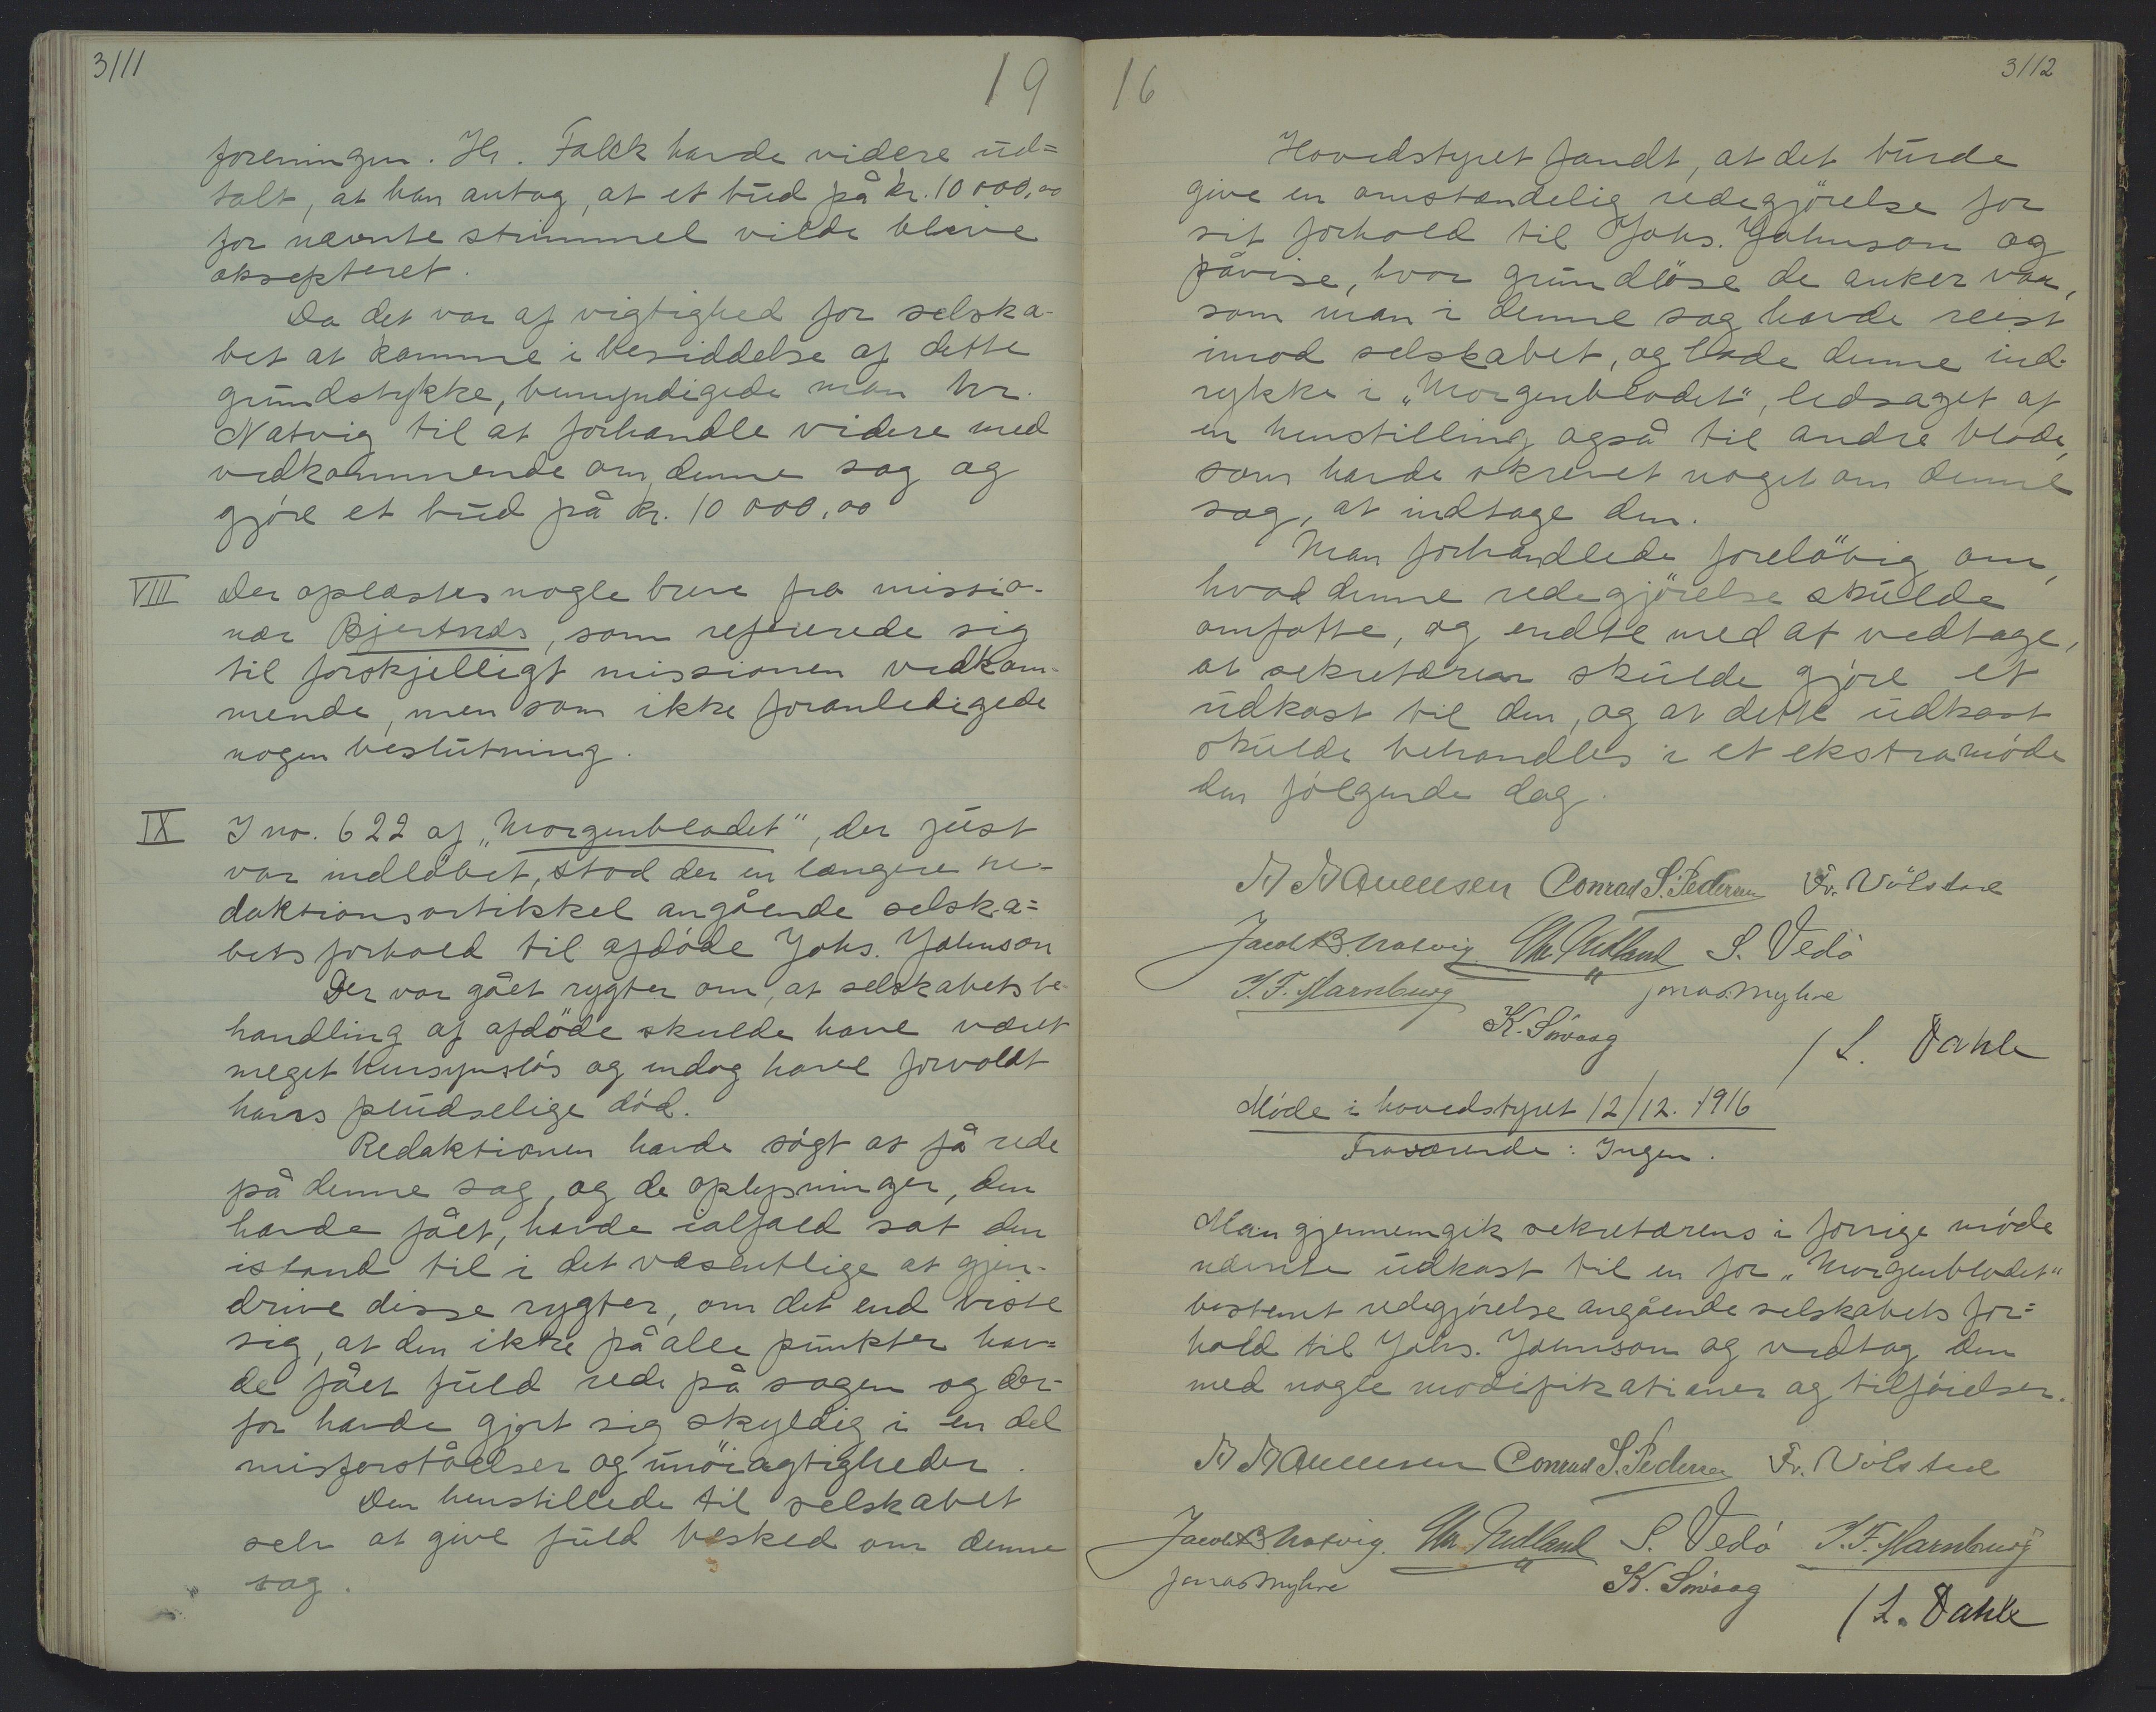 3/11
19
foreningen. Hr. Falck havde videre ud=
talt, at han antog, at et bud på kr. 10 000,00
for nævnte strimmel vilde blive
aksepteret.
Da det var af vigtighed for selska-
bet at komme i besiddelse af dette
grundstykke, bemyndigede man hr.
Natvig til at forhandle videre med
vedkommende om denne sag og
gjöre et bud på kr. 10 000,00
VIII Der oplæstes nogle breve fra missio-
nær Bjertnæs, som refererede sig
til forskjelligt missionen vedkom-
mende, men som ikke foranledigede
nogen beslutning.
IX I no. 622 af "Morgenbladet", der just
var indlöbet, stod der en længere re-
daktionsartikkel angående selska=
bets forhold til afdöde Johs. Johnson
Der var gået rygter om, at selskabets be-
handling af afdöde skulde have været
meget hensynslös og endog have forvoldt
hans pludselige död.
Redaktionen havde sögt at få rede
på denne sag, og de oplysninger, den
havde fået, havde ialfald sat den
istand til i det væsentlige at gjen-
drive disse rygter, om det end viste
sig, at den ikke på alle punkter hav=
de fået fuld rede på sagen og der-
for havde gjort sig skyldig i en del
misforståelser og unöiagtigheder.
Den henstillede til selskabet
selv at give fuld besked om denne
sag.
16
3/12
Hovedstyret fandt, at det burde
give en omstændelig redegjörelse for
sit forhold til Johs. Johnson og
påvise, hvor grundlöse de anker var,
som man i denne sag havde reist
imod selskabet, og lade denne ind-
rykke i "Morgenbladet", ledsaget af
en henstilling også til andre blade,
som havde skrevet noget om denne
sag, at indtage den.
Man forhandlede foreløbig om,
hvad denne redegjörelse skulde
omfatte, og endte med at vedtage,
at sekretæren skulde gjöre et
udkast til den, og at dette udkast
skulde behandles i et ekstramöde
den fölgende dag.
Conrad S. Pedersen Fr. Völstad
Jacob B. Natvig. Chr. Midland S. Vedö
J. F. Marnburg Jonas Myhre
K. Sövaag
/ L. Dahle
Möde i hovedstyret 12/12. 1916
Fraværende: Ingen.
Man gjennemgik sekretærens i forrige möde
nævnte udkast til en for "Morgenbladet"
bestemt redegjörelse angående selskabets for=
hold til Johs. Johnson og vedtog den
med nogle modifikationer og tilföielser.
Conrad S. Pedersen Fr. Völstad
Jacob B. Natvig. Chr. Midland S. Vedö J. F. Marnburg
Jonas Myhre K. Sövaag
/ L. Dahle